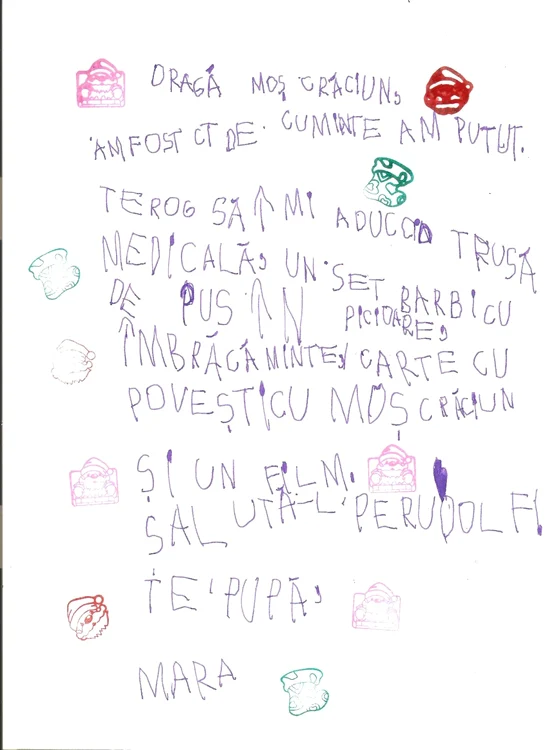 DRAGĂ MOȘ CRĂCIUN,
AM FOST CT DE CUMINTE AM PUTUT.
TE ROG SĂ ÎMI ADUCI O TRUSĂ
MEDICALĂ, UN SET BARBI CU
DE PUS ÎN PICIOARE,
ÎMBRĂCĂMINTE, CARTE CU
POVEȘTI CU MOȘ CRĂCIUN
ȘI UN FILM.
SALUTĂ-L PE RUDOLF!
TE PUPĂ,
MARA